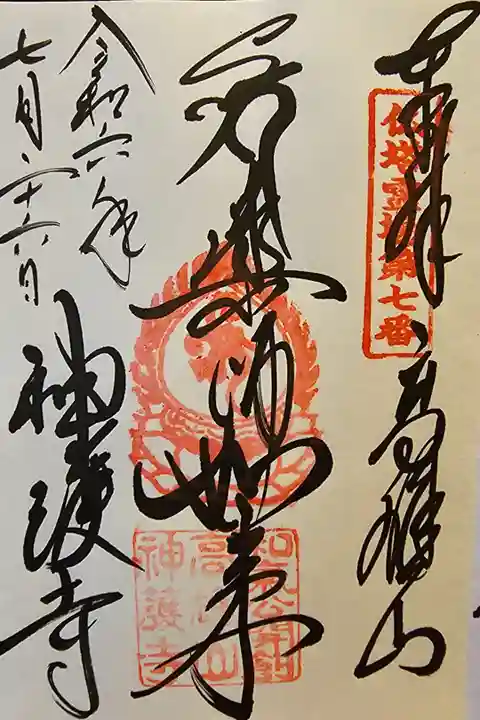 奉拝 高雄山
霊場第七番
薬師如来
高雄山
神護寺
令和六年
七月二十六日
神護寺